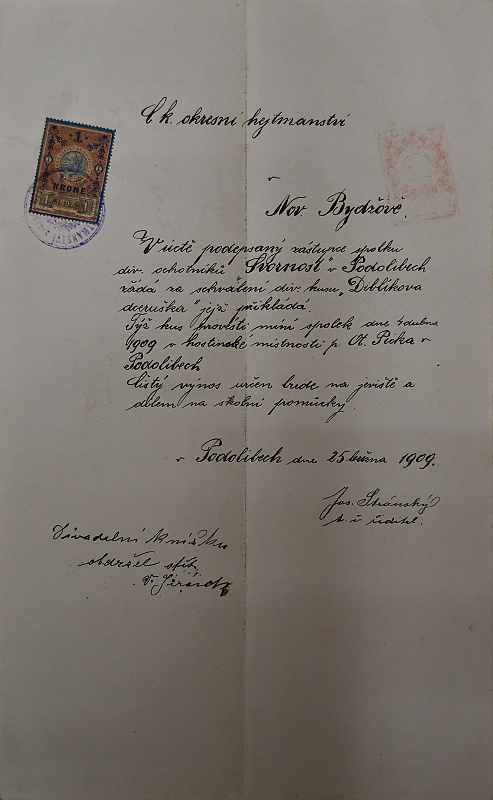 C k. okresní hejtmanství
v
Nov. Bydžově.
V úctě podepsaný zástupce spolku
div. ochotníků "Svornost" v Podolibech
žádá za schválení div. kusu "Diblíkova
dceruška" jejž přikládá.
Týž kus provésti míní spolek dne 4 dubna
1909 v hostinské místnosti p. Ot. Picka v
Podolibech
Čistý výnos určen bude na jeviště a
dílem na školní pomůcky.
v Podolibech dne 25 března 1909.
Jos. Stránský
t. č. ředitel.
Divadelní knížku
obdržel zpět
V. Jirásek
1
KRONE
1898